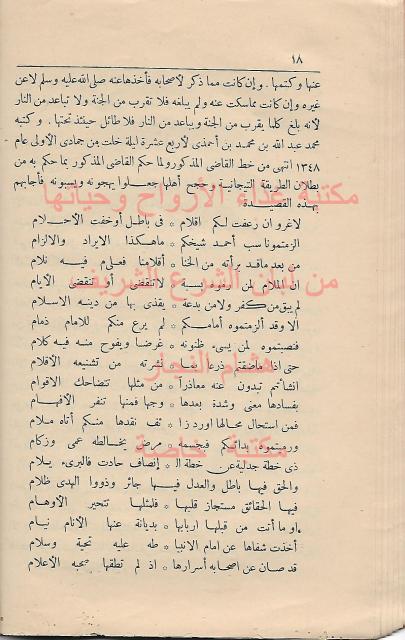 ١٨
عنها وكتمها . وإن كانت مما ذكر لأصحابه فأخذها عنه صلى الله عليه وسلم لا عن
غيره وإن كانت مما سكت عنه ولم يبلغه فلا تقرب من الجنة ولا تباعد من النار
لأنه بلغ كلما يقرب من الجنة ويباعد من النار فلا طائل حينئذ تحتها . وكتبه
محمد عبد الله بن محمد بن أحمذى لأربع عشرة ليلة خلت من جمادى الأولى عام
١٣٤٨ انتهى من خط القاضى المذكور ولما حكم القاضى المذكور بما حكم به من
بطلان الطريقة التيجانية وحجج أهلها جعلوا يهجونه ويسبونه فأجابهم
بهذه القصيدة
مكتبة غذاء الأرواح وحياتها
لاغرو ان رعفت لكم اقلام * فى باطل أوخفت الأحلام
الزمتمونا سب أحمد شيخكم * ما هكذا الايراد والالزام
من بعد ماقد برأته من الخنا * أقلامنا فعلام فيه نلام
ان الملام لمن رموه بسبة * لا تنقضى أو تنقضى الأيام
من لبان الشرع الشريف
لم يبق من كفر ولا من بدعة * يقذى بها من دينه الاسلام
الا وقد ألزمتموه أمامكم * لم يرع منكم للامام ذمام
فنصبتموه لمن يسىء ظنونه * غرضا ويفوح منه فيه كلام
هشام النجار
حتى اذا ما ضقتم ذرعا بما * نشرته من تشنيعه الاقلام
انشأتم تبدون عنه معاذراً * من مثلها تتضاحك الاقوام
بفسادها معنى وشدة بعدها * وجها فمنها تنفر الافهام
فمن استحال محالها اورد زا * ئف نقدها منكم أتاه ملام
ورميتموه بدائكم فبجسمه * مرض يخالطه عمى وزكام
مكتبة خاصة
ذى خطة جدلية عن خطة ال * إنصاف حادت فالبرىء يلام
والحق فيها باطل والعدل فيها جائر وذووا الهدى ظلام
فيها الحقائق مستجاز قلبها * فلمثلها تتحير الأوهام
او ما أتت من قبلها اربابها * بديانة عنها الأنام نيام
أخذت شفاها عن امام الانبيا * طه عليه تحية وسلام
قد صان عن اصحابه أسرارها * اذ لم تطقها صحبه الأعلام